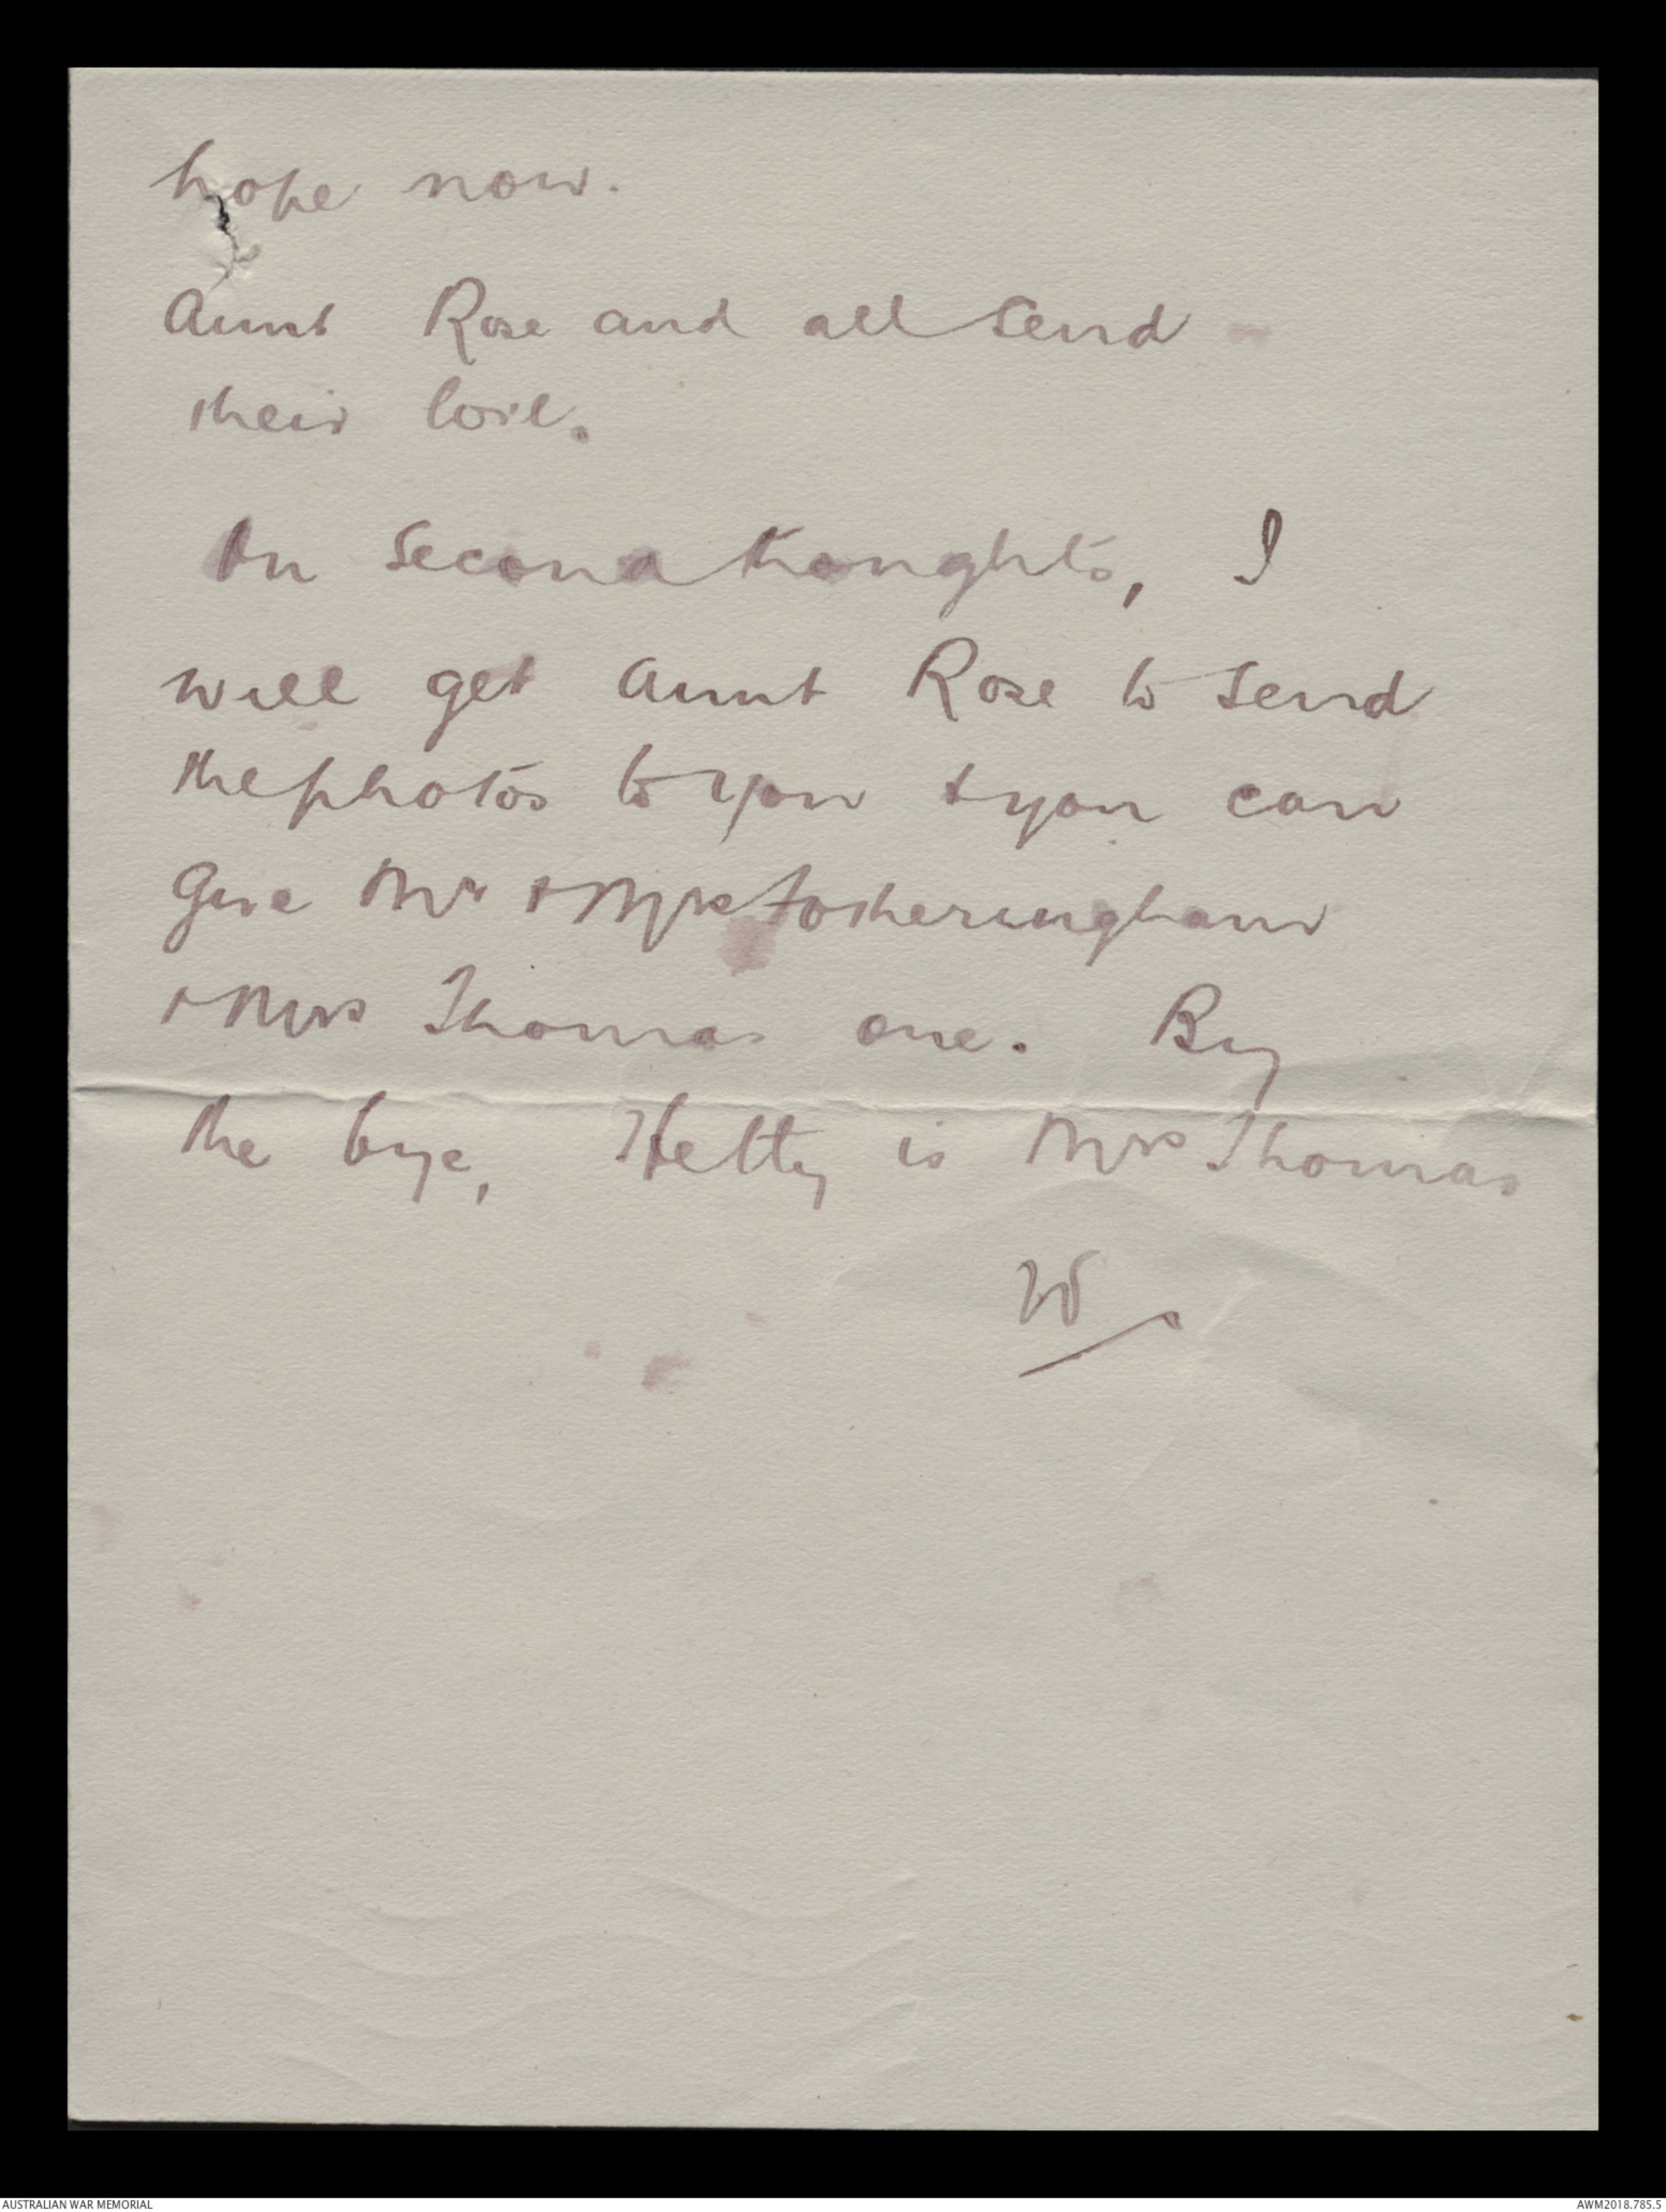 hope now.
Aunt Rose and all send
their love.
On second thoughts, I
will get Aunt Rose to send
the photos to you & you can
give Mr & Mrs Fotheringham
& Mrs Thomas one. By
the bye, Hetty is Mrs Thomas
W
AUSTRALIAN WAR MEMORIAL
AWM2018.785.5